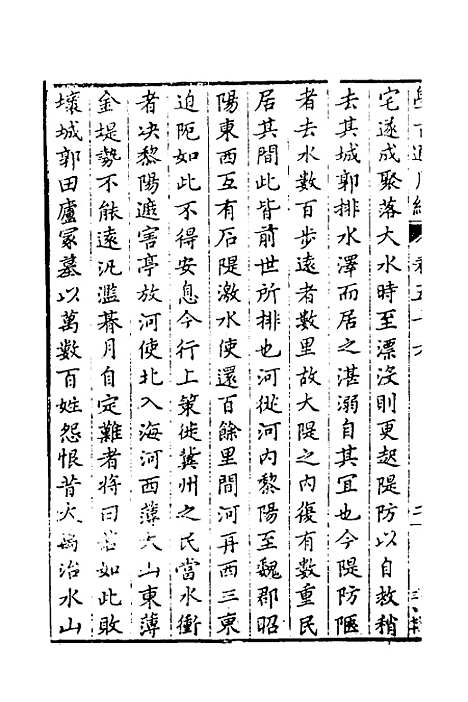 宅遂成聚落大水時至漂沒則更起隄防以自救稍
去其城郭排水澤而居之湛溺自其宜也今隄防陿
者去水數百步遠者數里故大隄之內復有數重民
居其間此皆前世所排也河從河內黎陽至魏郡昭
陽東西互有石隄激水使還百餘里間河再西三東
迫阨如此不得安息今行上策徙冀州之民當水衝
者決黎陽遮害亭放河使北入海河西薄大山東薄
金堤勢不能遠汎濫朞月自定難者將曰若如此敗
壞城郭田廬冢墓以萬數百姓怨恨昔大禹治水山